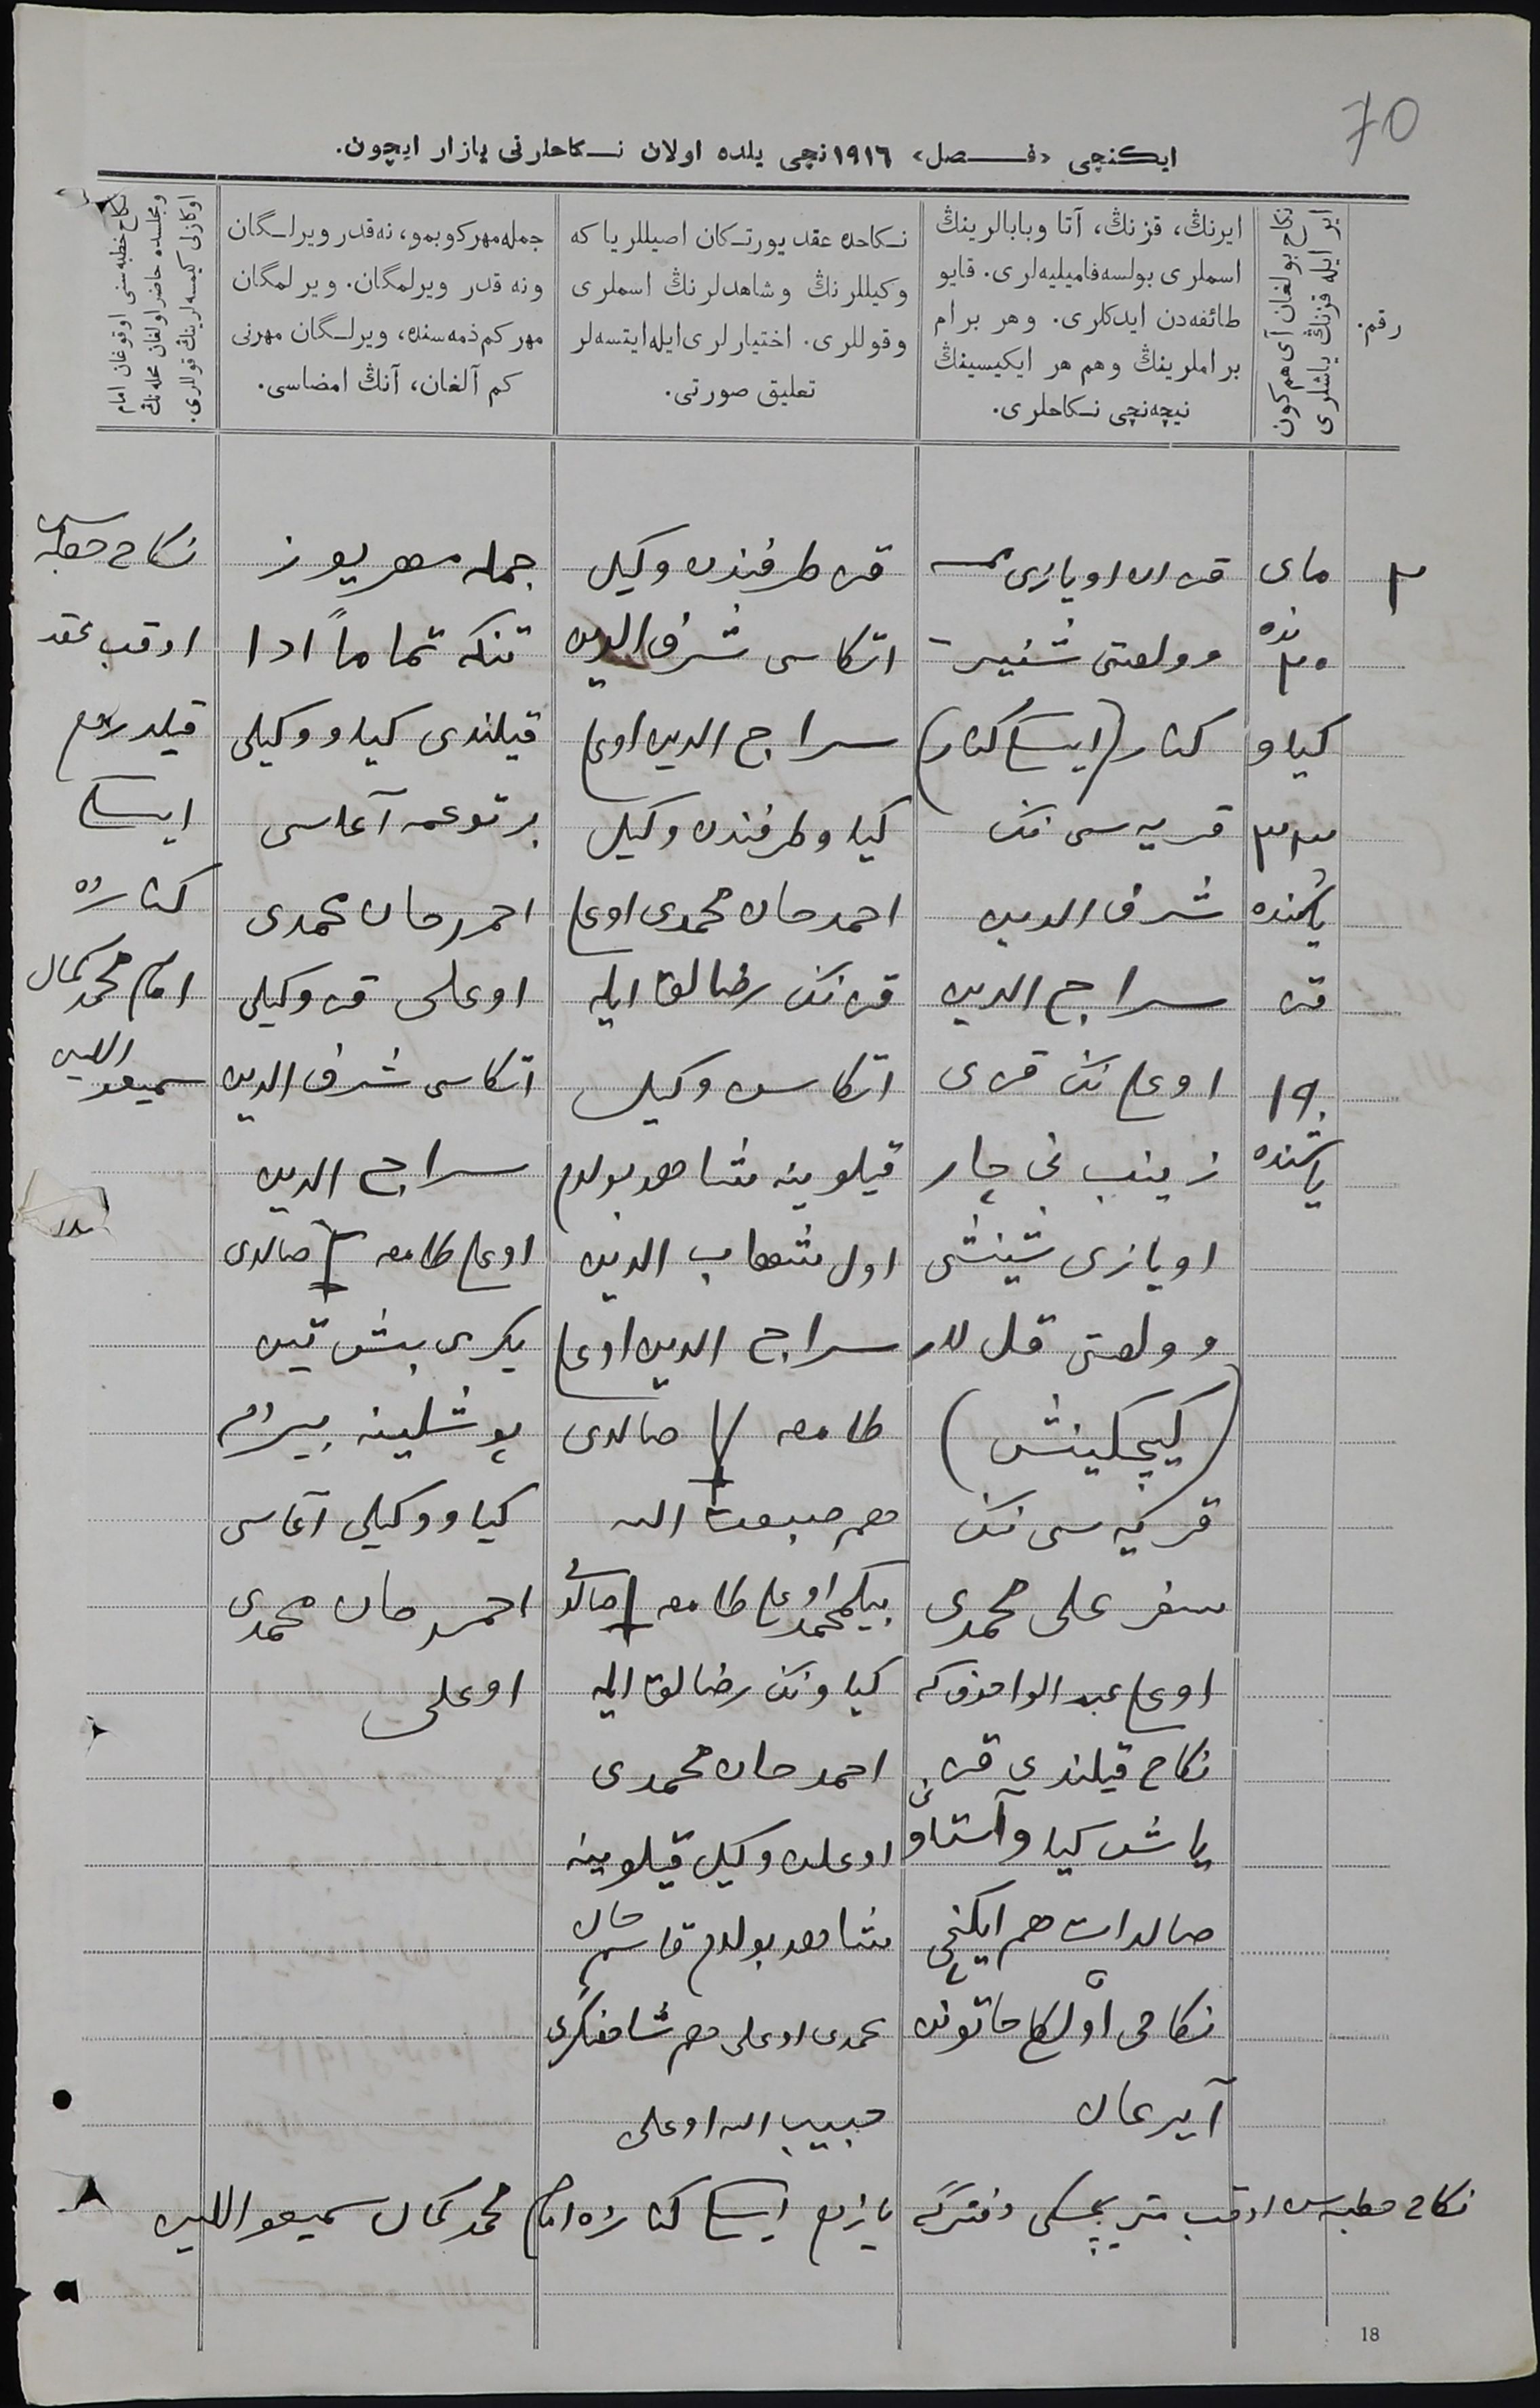 70
ایکنچی «فصل» ۱۹۱٦ نچی یلده اولان نکاحلرنی یازار ایچون.
رقم.
نکاح بولغان آی هم کون
ایر ایله قزنڭ یاشلری
ایرنڭ، قزنڭ، آتا وبابالرینڭ
اسملری بولسه فامیلیه‌لری. قایو
طائفه‌دن ایدکلری. وهر برام
براملرینڭ وهم هر ایکیسینڭ
نیچه‌نچی نکاحلری.
نکاحده عقد یورتکان اصیللر یا که
وکیللرنڭ وشاهدلرنڭ اسملری
وقوللری. اختیارلری ایله ایتسه‌لر
تعلیق صورتی.
جمله مهر کوبمو، نه‌قدر ویرلگان
ونه قدر ویرلمگان. ویرلمگان
مهر کم ذمه‌سنده، ویرلگان مهرنی
کم آلغان، آنڭ امضاسی.
نکاح خطبه‌سنی اوقوغان امام
ومجلسده حاضر اولغان محله‌نڭ
اوکازلی کیمسه‌لرینڭ قوللری.
۳
مای
نده
۳۰
کیاو
۳۳
یاشنده
قز
19
یاشنده
اویازی
وولصتی
کنار (ایسکی کنار)
قریه سی ننک
شرف الدین
سراج الدین
اوغلی ننک قزی
زینب نی چار
اویازی شینشی
وولصتی قل لار
(کیچکینش)
قریه سی ننک
سفر علی محمدی
اوغلی عبد الواحدقه
نکاح قیلندی قز
یاش کیاو آستاونی
صالدات هم ایکنچی
نکاحی اول خاتونن
آیرغان
قز طرفندن وکیل
اتکاسی شرف الدین
سراج الدین اوغلی
کیاو طرفندن وکیل
احمدجان محمدی اوغلی
قزننک رضالقی ایله
اتکاسن وکیل
قیلوینه شاهد بولدم
اول شهاب الدین
سراج الدین اوغلی
طامغه صالدی
هم صبغت الله
بیکمحمد اوغلی طامغه صالدی
کیاوننک رضالقی ایله
احمدجان محمدی
اوغلن وکیل قیلوینه
شاهد بولدم قاسم جان
محمدی اوغلی هم شاهنکری
حبیب الله اوغلی
جمله مهر یوز
تنکه تماماً ادا
قیلندی کیاو وکیلی
برتوغمه آغاسی
احمدجان محمدی
اوغلی قز وکیلی
اتکاسی شرف الدین
سراج الدین
اوغلی طامغه صالدی
یکرمی بیش تین
پوشلینه بیردم
کیاو وکیلی آغاسی
احمدجان محمدی
اوغلی
نکاح خطبه سن
اوقب عقد
قیلدردم
ایسکی
کنارده
امام محمدکمال
سمیع اللین
نکاح خطبه سن اوقب متریچسکی دفترگه یازدم ایسکی کنارده امام محمدکمال سمیع اللین
18